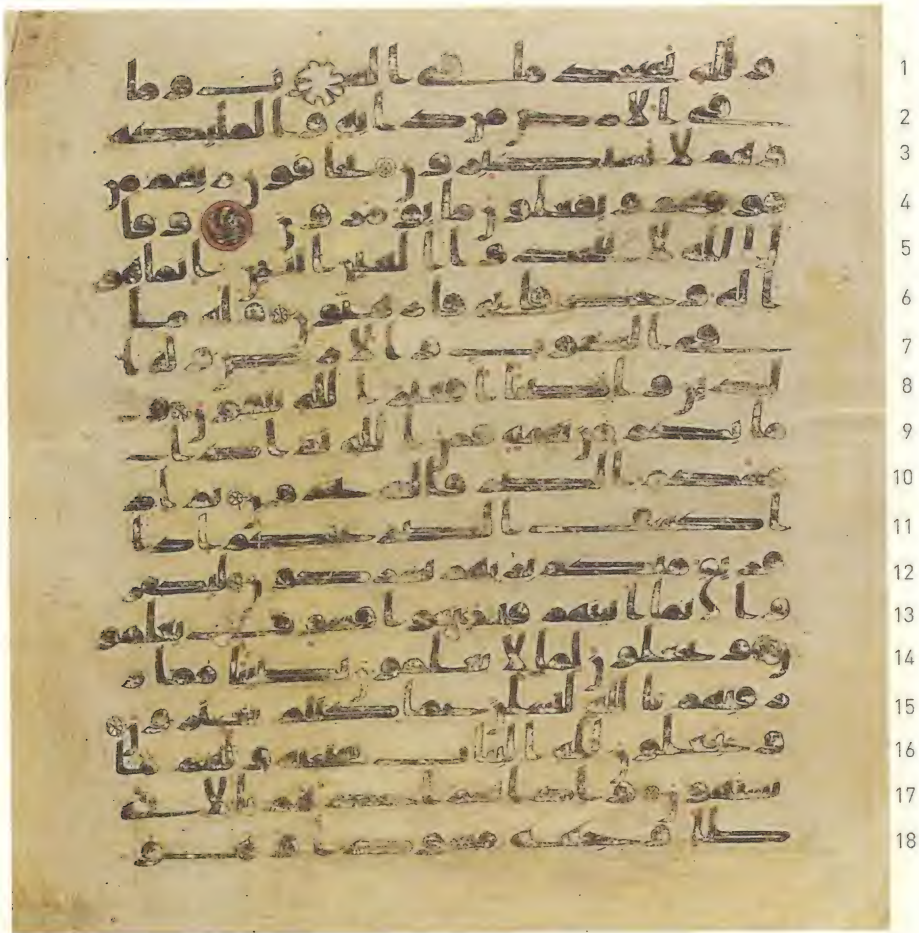 1 ولله يسجد ما في السموت وما
2 في الارض من دابه والمليكه
3 وهم لا يستكبرون يخافون ربهم من
4 فوقهم ويفعلون ما يومرون وقا
5 ل الله لا تتخذوا الهين اثنين انما هو
6 اله وحد فايي فارهبون وله ما
7 في السموت والارض وله ا
8 لدين واصبا افغير الله تتقون و
9 ما بكم من نعمه فمن الله ثم اذا
10 مسكم الضر فاليه تجرون ثم اذ
11 ا كشف الضر عنكم اذا
12 فريق منكم بربهم يشركون ليكفر
13 وا بما اتينهم فتمتعوا فسوف تعلمو
14 ن ويجعلون لما لا يعلمون نصيبا مما ر
15 زقنهم تالله لتسلن عما كنتم تفترون
16 ويجعلون لله البنت سبحنه ولهم ما
17 يشتهون واذا بشر احدهم بالانثى
18 ظل وجهه مسودا وهو